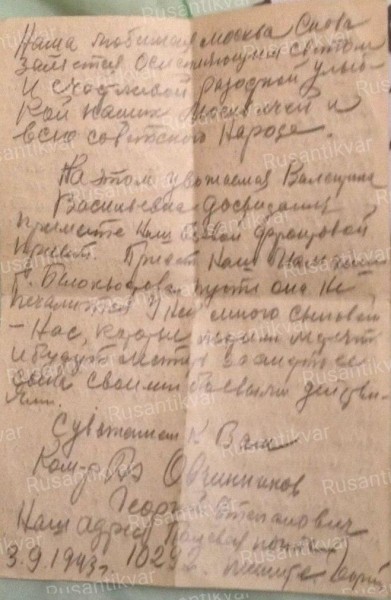 Наша любимая москва снова
зальется ослепляющим светом
и счастливой радостной улыб-
кой наших Москвичей и
всего советского народа.
На этом уважаемая Валентина
Васильевна досвидания
примите наш боевой фронтовой
привет. Привет наш
пусть она не
печалится У ней много сыновей
- Нас, которые
и будут мстить за
своими боевыми действи-
ями.
С уважением к Вам
Ком-р Овчинников
Георгий Степанович
Наш адрес Полевая почта
3.9.1943г. 1029
Rusantikvar